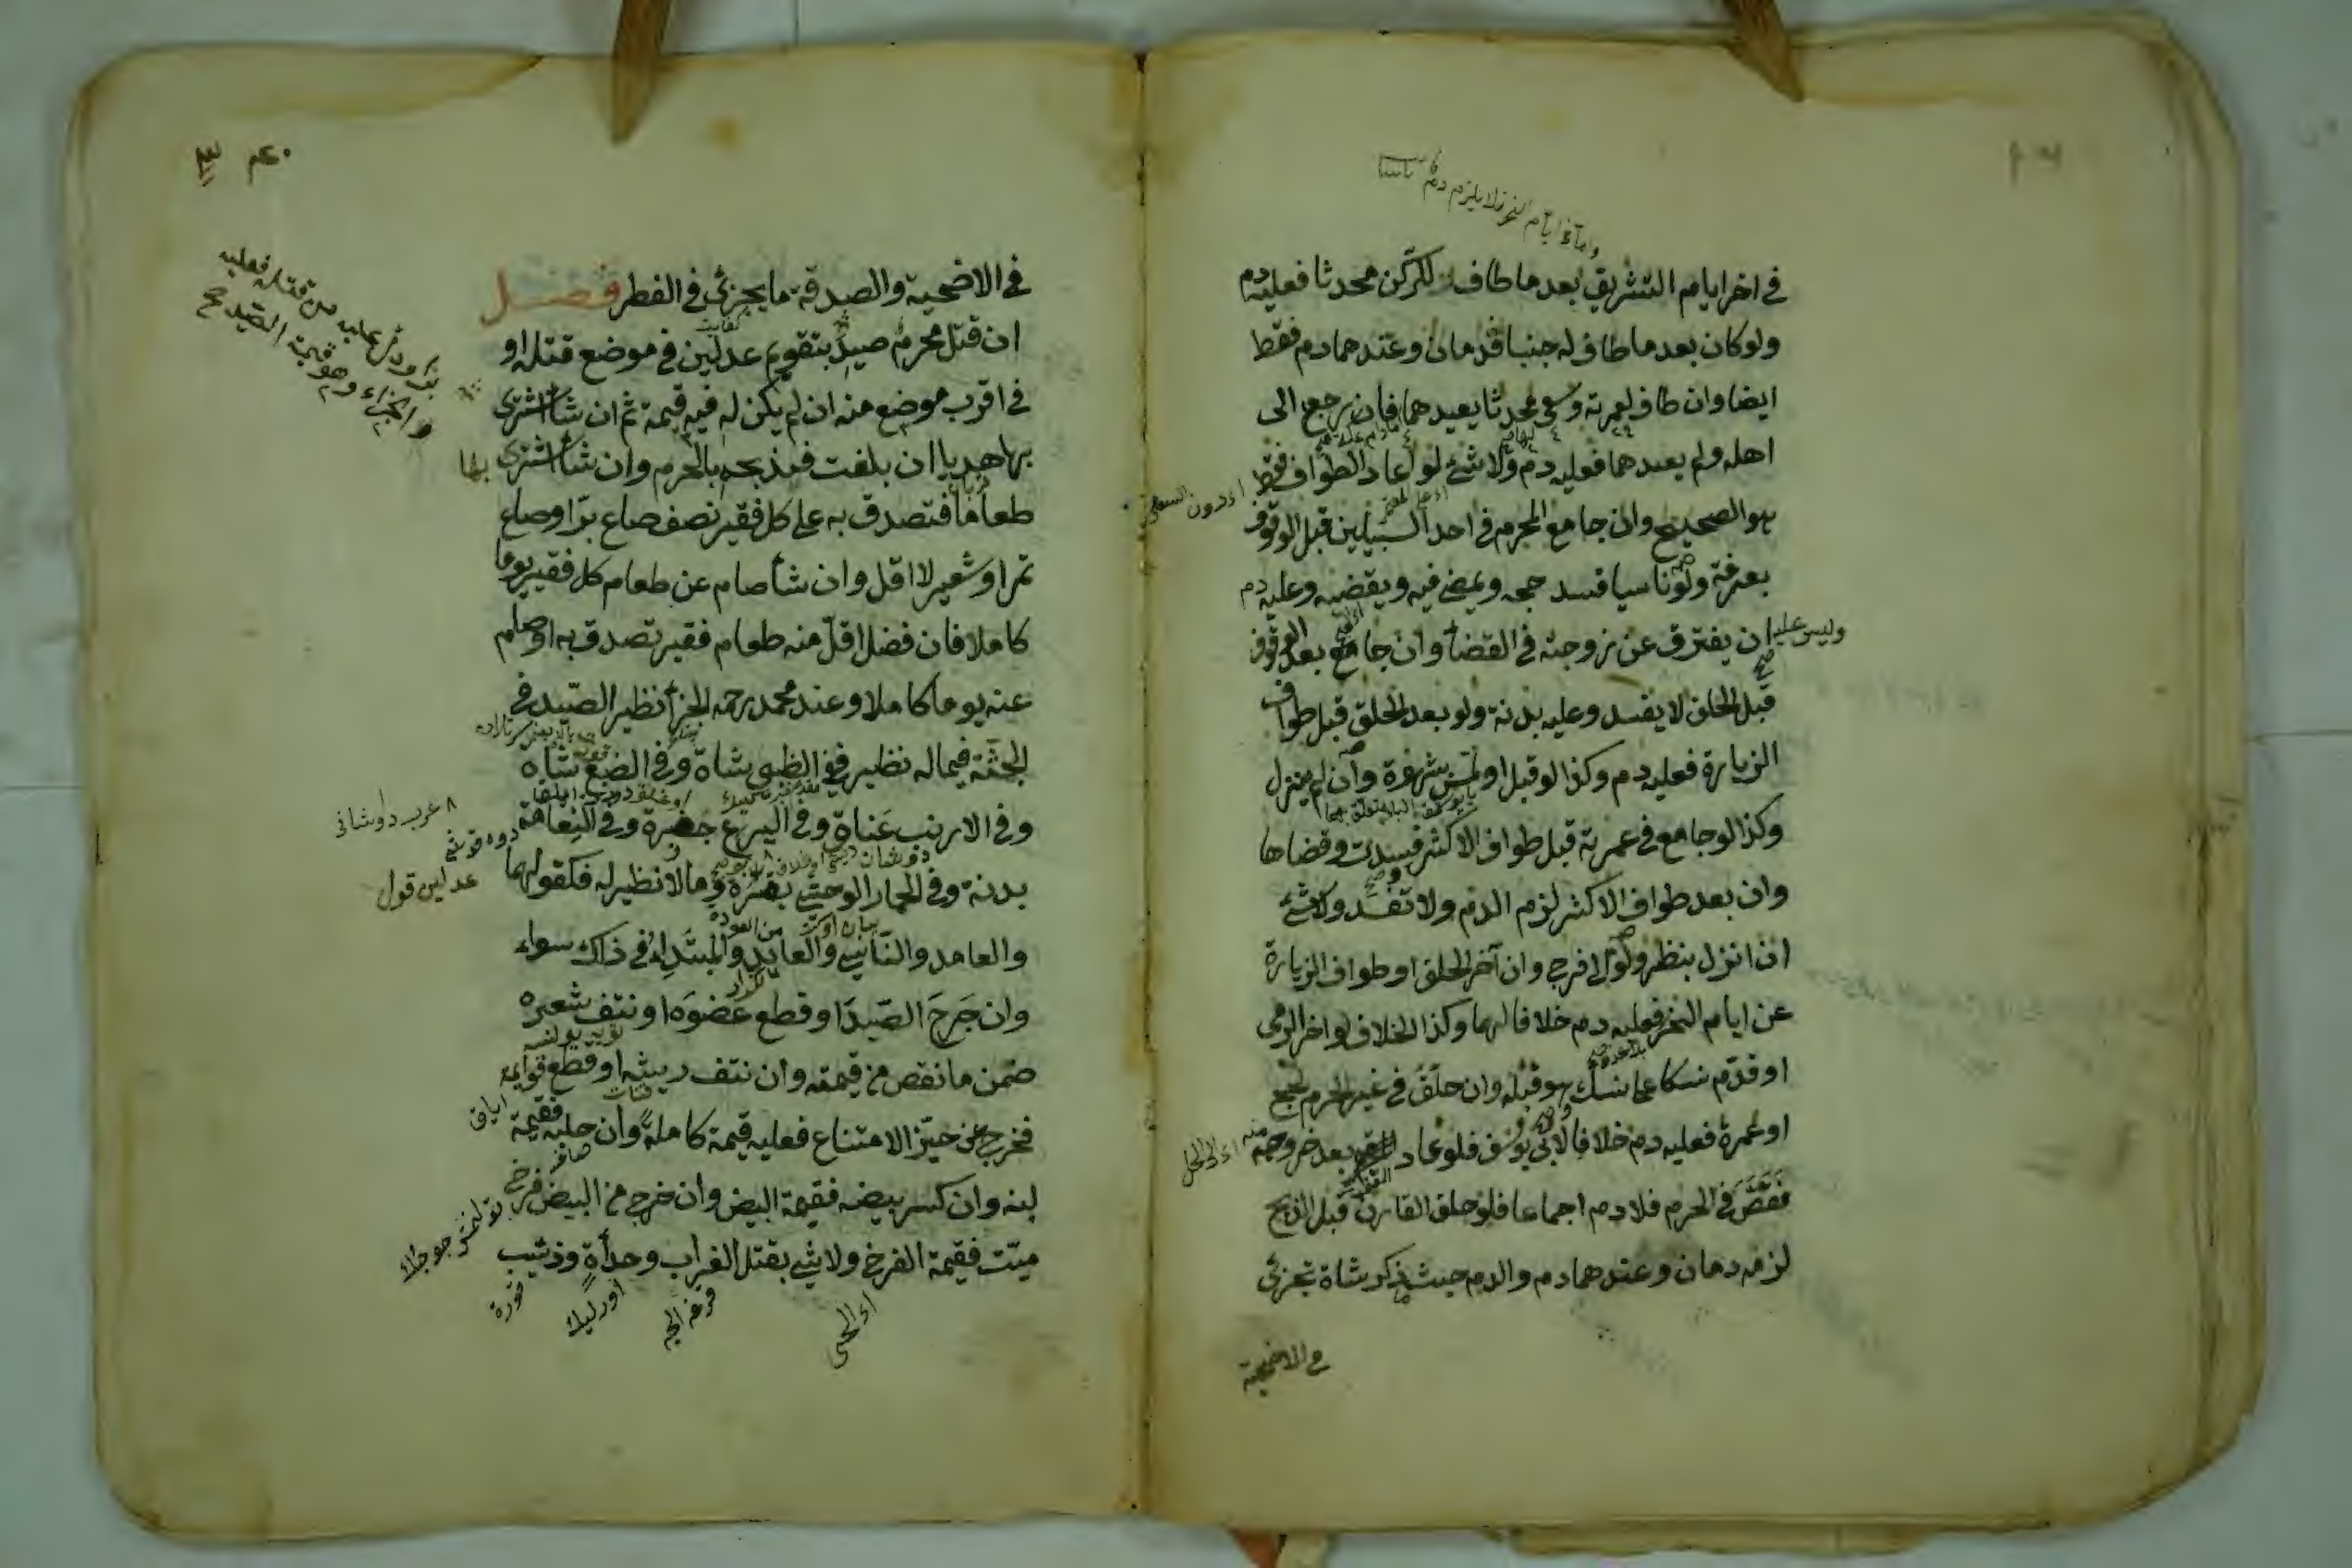 في اخر ايام التشريق بعد ما طاف للركن محدثا فعليه دم
ولو كان بعد ما طاف له جنبا فدمان وعندهما دم فقط
ايضا وان طاف لعمرته وسعى محدثا يعيدهما فان رجع الى
اهله ولم يعدهما فعليه دم ولا شئ لو اعاد الطواف فقط
هو الصحيح وان جامع المحرم في احد السبيلين قبل الوقوف
بعرفة ولو ناسيا فسد حجه ويمضي فيه ويقضيه وعليه دم
وليس عليه ان يفترق عن زوجته في القضاء وان جامع بعد الوقوف
قبل الحلق لا يفسد وعليه بدنة ولو بعد الحلق قبل طواف
الزيارة فعليه دم وكذا لو قبل او لمس بشهوة وان لم ينزل
وكذا لو جامع في عمرته قبل طواف الاكثر فسدت وقضاها
وان بعد طواف الاكثر لزم الدم ولا تفسد ولا شئ
ان انزل بنظر ولو الى فرج وان آخر الحلق او طواف الزيارة
عن ايام النحر فعليه دم خلافا لهما وكذا الخلاف لو اخر الرمي
او قدم نسكا على نسك هو قبله وان حلق في غير الحرم لحج
او عمرة فعليه دم خلافا لابى يوسف فلو عاد بعد خروجه
فقص في الحرم فلا دم اجماعا فلو حلق القارن قبل الذبح
لزمه دمان وعندهما دم والدم حيث ذكر شاة تجزئ
في الاضحية
اى دون السعى
اى الى الحل
في الاضحية والصدقة ما يجزئ في الفطر فصل
ان قتل محرم صيدا بتقويم عدلين في موضع قتله او
في اقرب موضع منه ان لم يكن له فيه قيمة ثم ان شأ اشترى
بها هديا ان بلغت فيذبحه بالحرم وان شأ اشترى بها
طعاما فتصدق به على كل فقير نصف صاع برّ او صاع
تمر او شعير لا اقل وان شأ صام عن طعام كل فقير يوما
كاملا فان فضل اقلّ منه طعام فقير تصدق به او صام
عنه يوما كاملا وعند محمد رحمه الجزأ نظير الصّيد في
الجثة فيما له نظير ففي الظبي شاة وفي الضبع شاة
وفي الارنب عَناق وفي اليربوع جفرة وفي النعامة
بدنة وفي الحمار الوحشي بقرة وما لا نظير له فكقولهما
والعامد والنّاسي والعايد والمبتدِئ في ذلك سواء
وان جَرحَ الصّيدَ او قطع عضوَه او نتف شعره
ضمن ما نقص من قيمته وان نتف ريشه او قطع قوايمه
فخرج عن حيّز الامتناع فعليه قيمة كاملة وان حلبه فقيمة
لبنه وان كسر بيضه فقيمة البيض وان خرج من البيض فرخ
ميّت فقيمة الفرخ ولا شئ بقتل الغراب وحدأة وذئب
او دل عليه من قتله فعليه
الجزاء وهو قيمة الصيد صح
عدلين قول